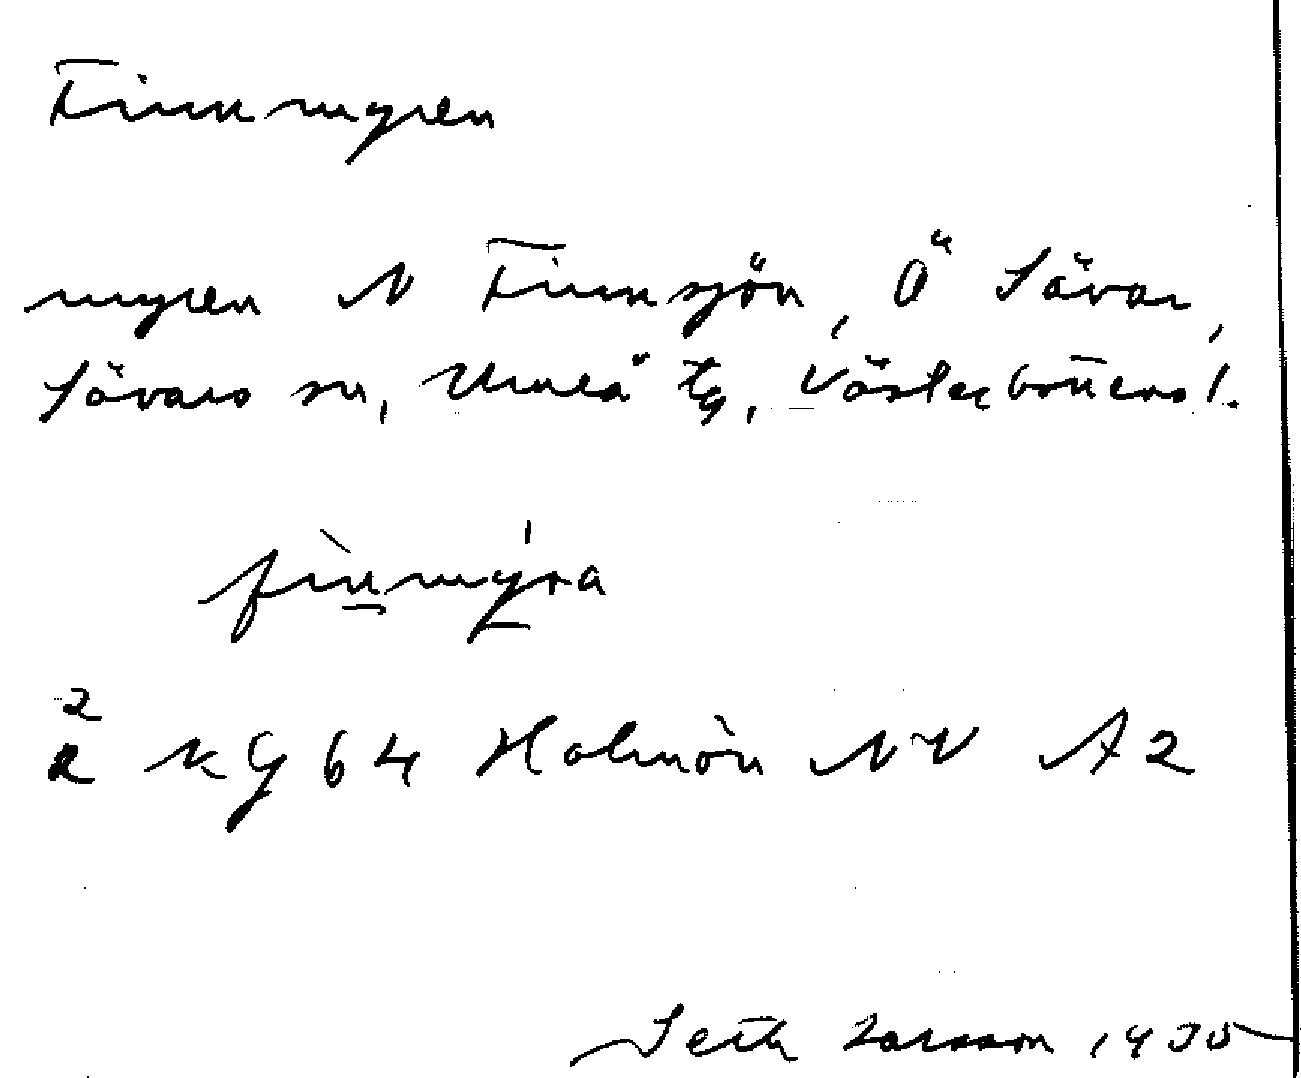 Finnmyren
myren N Finnsjön, Ö Sävar,
Sävars sn, Umeå tg, Västerbottens l.
fìn̲mý̲ra
2
2 KG 64 Holmön NV A2
Seth Larsson 1935